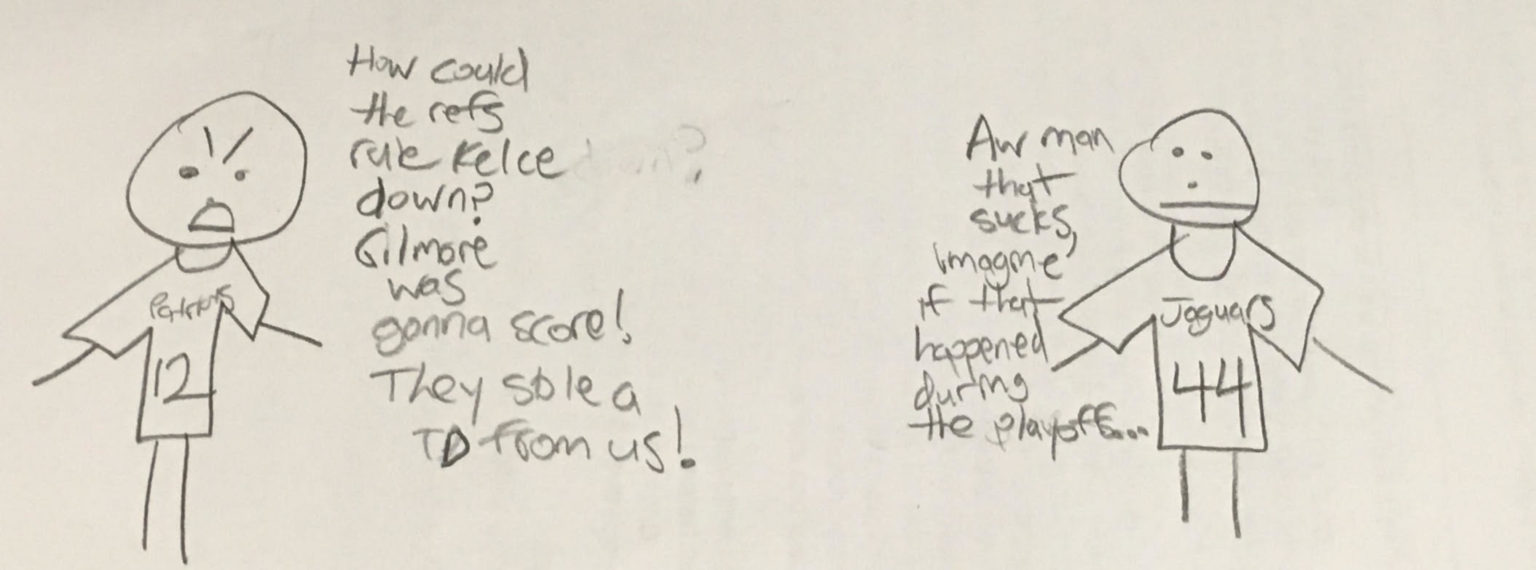 How could
the refs
rule Kelce
down?
Gilmore
was
gonna score!
They stole a
TD from us!
Patriots
12
Aw man
that
sucks,
imagine
if that
happened
during
the playoffs...
Jaguars
44